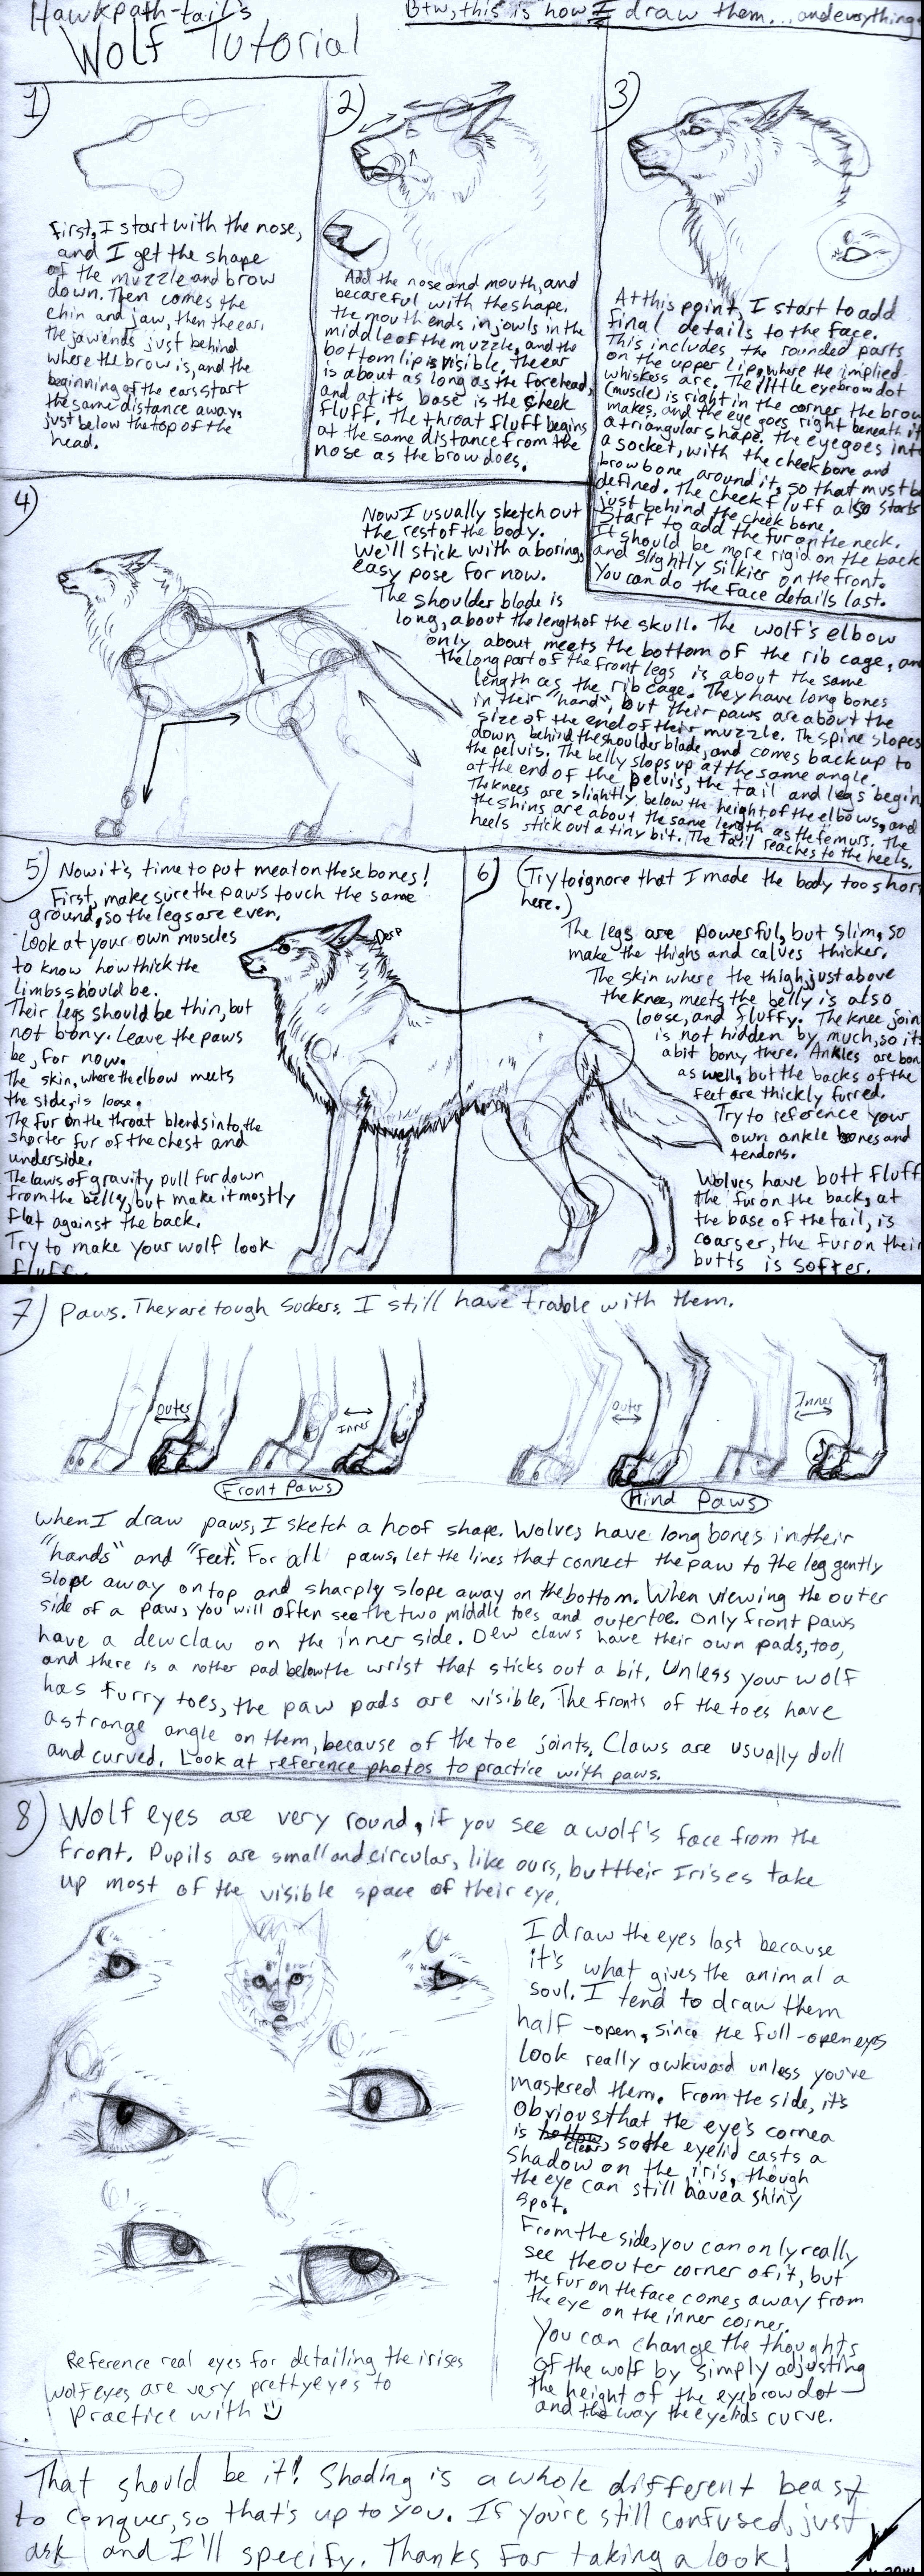 Hawkpath-tail's
Wolf Tutorial
Btw, this is how I draw them... and everything
1)
First, I start with the nose,
and I get the shape
of the muzzle and brow
down. Then comes the
chin and jaw, then the ear.
the jaw ends just behind
where the brow is, and the
beginning of the ears start
the same distance away,
just below the top of the
head.
2)
Add the nose and mouth, and
be careful with the shape.
the mouth ends in jowls in the
middle of the muzzle, and the
bottom lip is visible. the ear
is about as long as the forehead,
and at its base is the cheek
fluff. The throat fluff begins
at the same distance from the
nose as the brow does.
3)
At this point, I start to add
final details to the face.
This includes the rounded parts
on the upper lip, where the implied
whiskers are. The little eyebrow dot
(muscle) is right in the corner the brow
makes, and the eye goes right beneath it
a triangular shape. the eye goes into
a socket, with the cheek bone and
brow bone around it, so that must be
defined. The cheek fluff also starts
just behind the cheek bone.
Start to add the fur on the neck.
It should be more rigid on the back
and slightly silkier on the front.
You can do the face details last.
4)
Now I usually sketch out
the rest of the body.
We'll stick with a boring,
easy pose for now.
The shoulder blade is
long, about the length of the skull. The wolf's elbow
only about meets the bottom of the rib cage, an
the long part of the front legs is about the same
length as the rib cage. They have long bones
in their "hand", but their paws are about the
size of the end of their muzzle. The spine slopes
down behind the shoulder blade, and comes back up to
the pelvis. The belly slops up at the same angle.
at the end of the pelvis, the tail and legs begin
The knees are slightly below the height of the elbows, and
the shins are about the same length as the femurs. The
heels stick out a tiny bit. The tail reaches to the heels.
5) Now it's time to put meat on these bones!
First, make sure the paws touch the same
ground, so the legs are even.
Look at your own muscles
to know how thick the
limbs should be.
Their legs should be thin, but
not bony. Leave the paws
be, for now.
The skin, where the elbow meets
the side, is loose.
The fur on the throat blends into the
shorter fur of the chest and
underside.
The laws of gravity pull fur down
from the belly, but make it mostly
flat against the back.
Try to make your wolf look
fluffy.
Derp
6) (Try to ignore that I made the body too short
here.)
The legs are powerful, but slim, so
make the thighs and calves thicker.
The skin where the thigh, just above
the knee, meets the belly is also
loose, and fluffy. The knee join
is not hidden by much, so its
a bit bony there. Ankles are bon
as well, but the backs of the
feet are thickly furred.
Try to reference your
own ankle bones and
tendons.
Wolves have butt fluff
the fur on the back, at
the base of the tail, is
coarser, the fur on their
butts is softer.
7) Paws. They are tough suckers. I still have trouble with them.
Outer
Inner
Front Paws
Outer
Inner
Hind Paws
When I draw paws, I sketch a hoof shape. Wolves have long bones in their
"hands" and "feet". For all paws, let the lines that connect the paw to the leg gently
slope away on top and sharply slope away on the bottom. When viewing the outer
side of a paw, you will often see the two middle toes and outer toe. Only front paws
have a dewclaw on the inner side. Dew claws have their own pads, too,
and there is a nother pad below the wrist that sticks out a bit. Unless your wolf
has furry toes, the paw pads are visible. The fronts of the toes have
a strange angle on them, because of the toe joints. Claws are usually dull
and curved. Look at reference photos to practice with paws.
8) Wolf eyes are very round, if you see a wolf's face from the
front. Pupils are small and circular, like ours, but their Irises take
up most of the visible space of their eye.
I draw the eyes last because
it's what gives the animal a
soul. I tend to draw them
half-open, since the full-open eyes
look really awkward unless you've
mastered them. From the side, it's
obvious that the eye's cornea
is clear, so the eyelid casts a
shadow on the iris, though
the eye can still have a shiny
spot.
From the side, you can only really
see the outer corner of it, but
the fur on the face comes away from
the eye on the inner corner.
You can change the thoughts
of the wolf by simply adjusting
the height of the eyebrow dot
and the way the eyelids curve.
Reference real eyes for detailing the irises
wolf eyes are very pretty eyes to
practice with
That should be it! Shading is a whole different beast
to conquer, so that's up to you. If you're still confused, just
ask and I'll specify. Thanks for taking a look!